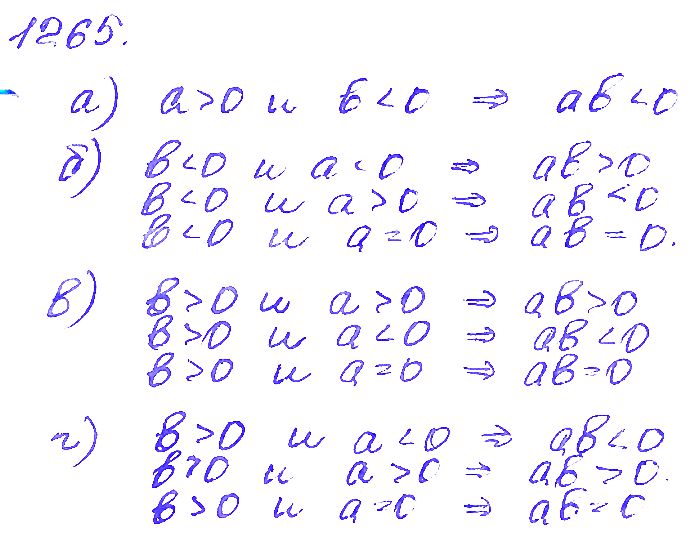 1265.
а) a>0 и b<0 ⇒ ab<0
б) b<0 и a<0 ⇒ ab>0
b<0 и a>0 ⇒ ab<0
b<0 и a=0 ⇒ ab=0.
в) b>0 и a>0 ⇒ ab>0
b>0 и a<0 ⇒ ab<0
b>0 и a=0 ⇒ ab=0
г) b>0 и a<0 ⇒ ab<0
b>0 и a>0 ⇒ ab>0.
b>0 и a=0 ⇒ ab=0